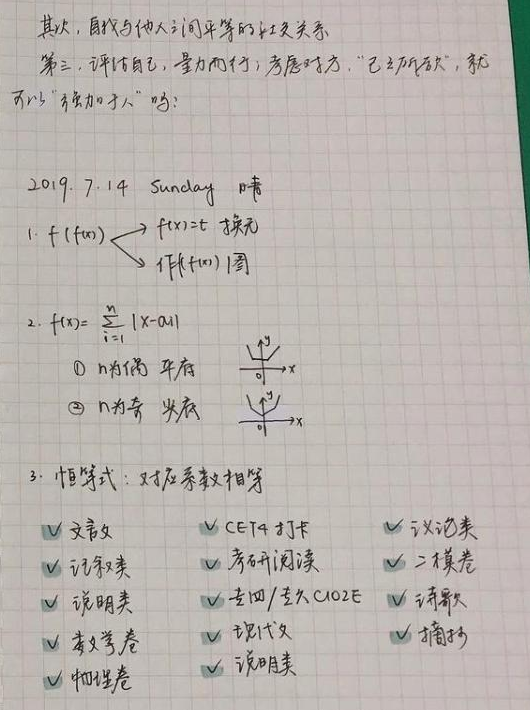 其次，自我与他人之间平等的社交关系
第三，评估自己，量力而行；考虑对方，“己之所欲”，就
可以“强加于人”吗？
2019. 7. 14 Sunday 晴
1. f(f(x)) f(x)=t 换元
作f(f(x))图
2. f(x)= n∑i=1 |x-ai|
① n为偶 平底 y 0 x
② n为奇 尖底 y 0 x
3. 恒等式：对应系数相等
√ 文言文 √ CET4打卡 √ 议论类
√ 记叙类 √ 考研阅读 √ 二模卷
√ 说明类 √ 专四/专八 CLOZE √ 诗歌
√ 数学卷 √ 现代文 √ 摘抄
√ 物理卷 √ 说明类